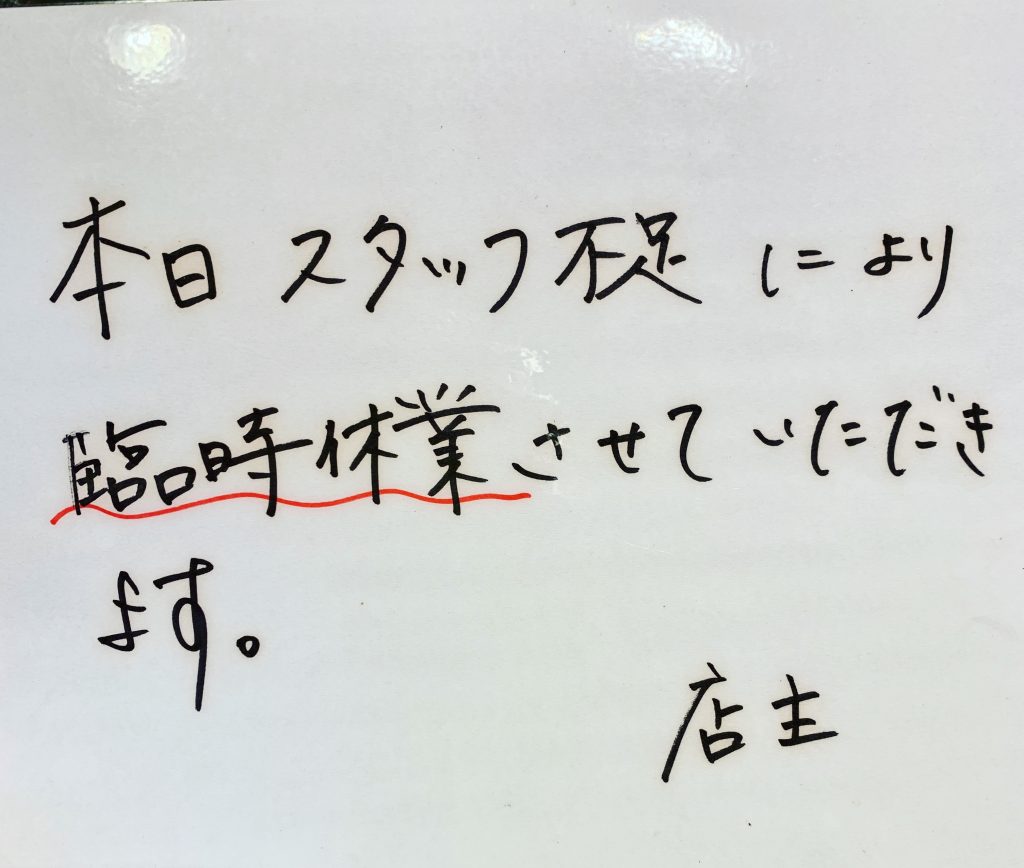 本日 スタッフ不足 により
臨時休業させていただき
ます。
店主